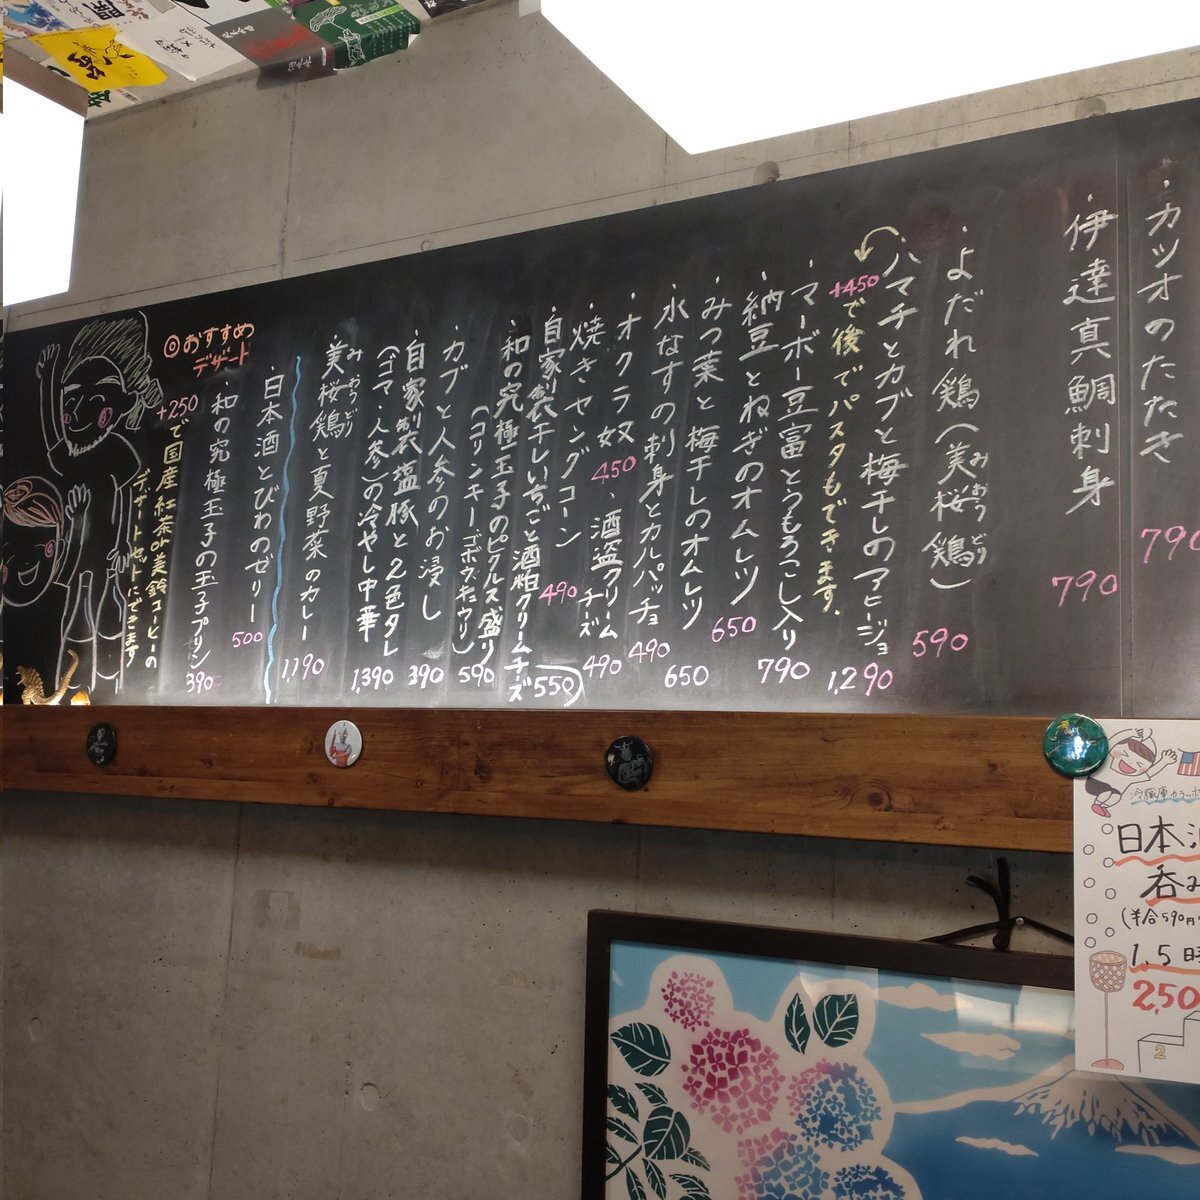 ・カツオのたたき 790
・伊達真鯛刺身 790
・よだれ鶏(美桜鶏) 590
みおうどり
・ハマチとカブと梅干しのアヒージョ 1,290
+450で後でパスタもできます.
・マーボー豆富とうもろこし入り 790
・納豆とねぎのオムレツ 650
・みつ葉と梅干しのオムレツ 650
・水なすの刺身とカルパッチョ 490
・オクラ奴 450、酒盗クリームチーズ 490
・焼きヤングコーン 490
・自家製干しいちごと酒粕クリームチーズ 550
・和の究極玉子のピクルス盛り
(コリンキー・ゴボウ・キュウリ) 590
・カブと人参のお浸し 390
・自家製塩豚と2色タレ
(ゴマ・人参)の冷やし中華 1,390
みおうどり
・美桜鶏と夏野菜のカレー 1,190
◎おすすめ
デザート
・日本酒とびわのゼリー 500
・和の究極玉子の玉子プリン 390
+250で国産紅茶or美鈴コーヒーの
デザートセットにできます
冷蔵庫
日本
呑み
590円
1.5時
2,50
2